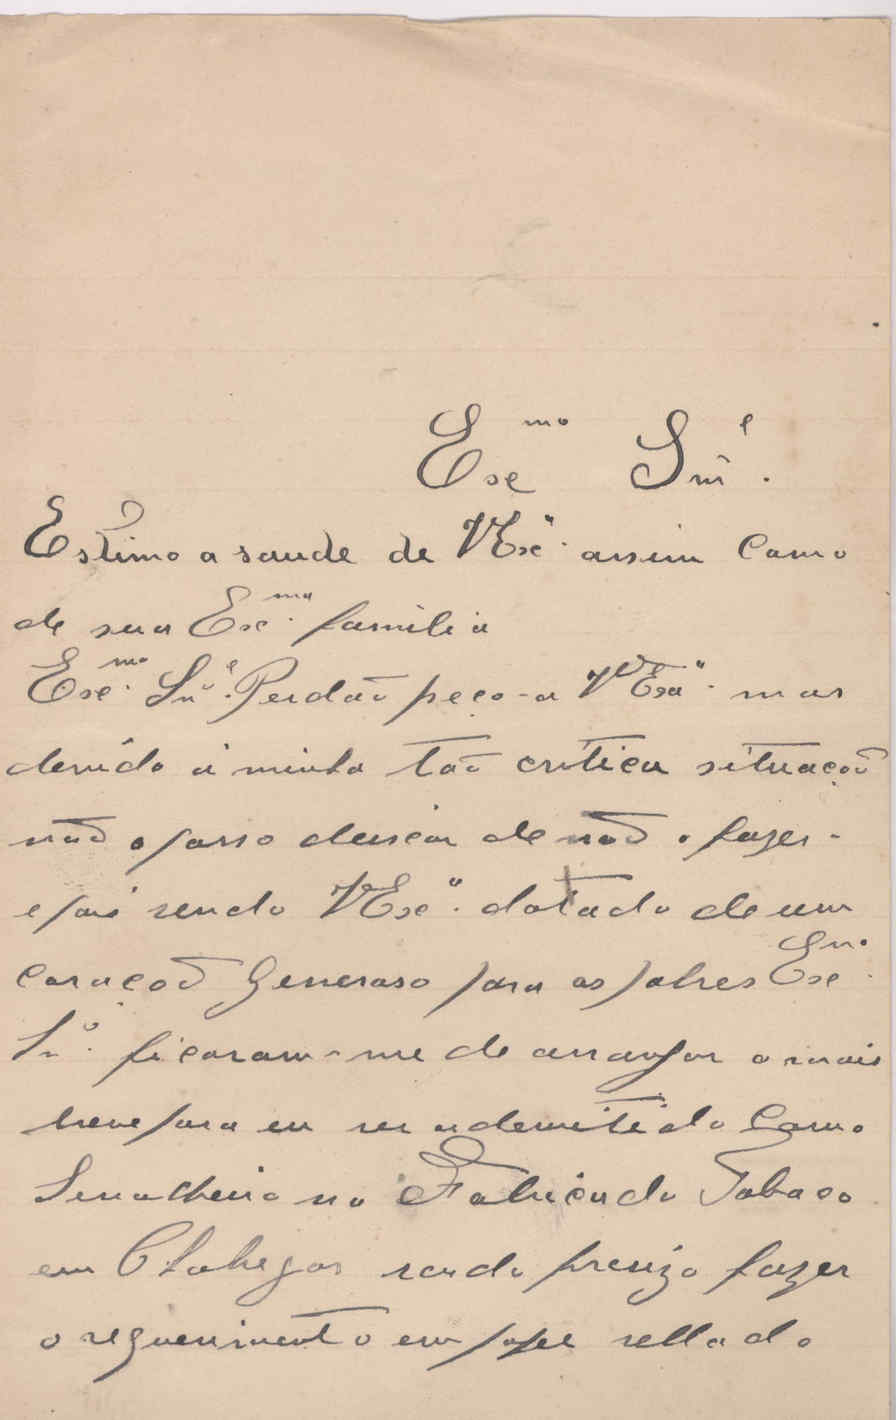 Exc mo Snr e.
Estimo a saude de VExcª. assim como
de sua Exc.ma familia
Exc.mo Snr e. Perdão peço-a VExaª. mas
devido á minha tão critica situação
não o posso deixar de não o fazer-
e pois sendo VExcª. dotado de um
coração Generoso para os pobres Exc.mo
Snr o. ficaram-me de arranjar o mais
breve para eu ser ademitido como
Serralheiro na Fabrica do Tabaco
em Chabregas sendo preuizo fazer
o reguerimento em papel sellado